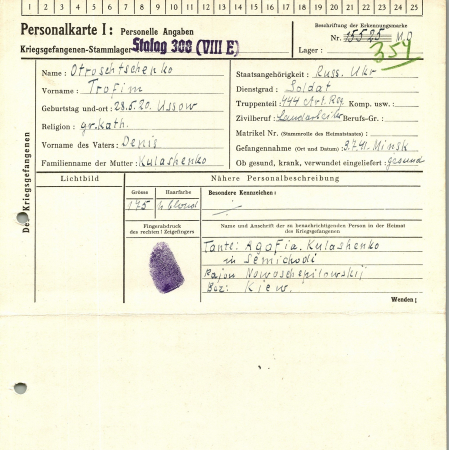 1 2 3 4 5 6 7 8 9 10 11 12 13 14 15 16 17 18 19 20 21 22 23 24 25
Personalkarte I: Personelle Angaben
Kriegsgefangenen-Stammlager: Stalag 308 (VIII E)
Beschriftung der Erkennungsmarke
Nr. 15525
Lager:
359
Des Kriegsgefangenen
Name: Otroschtschenko
Vorname: Trofim
Geburtstag und -ort: 28.5.20. Ussow
Religion: gr. kath.
Vorname des Vaters: Denis
Familienname der Mutter: Kulashenko
Staatsangehörigkeit: Russ. Ukr
Dienstgrad: Soldat
Truppenteil: 444 Art. Reg Komp. usw.:
Zivilberuf: Landarbeiter Berufs-Gr.:
Matrikel Nr. (Stammrolle des Heimatstaates):
Gefangennahme (Ort und Datum): 3.7.41. Minsk
Ob gesund, krank, verwundet eingeliefert: gesund
Lichtbild
Nähere Personalbeschreibung
Grösse
Haarfarbe
Besondere Kennzeichen:
175
blond
Fingerabdruck
des rechten! Zeigefingers
Name und Anschrift der zu benachrichtigenden Person in der Heimat
des Kriegsgefangenen
Tante: Agofia Kulashenko
in Semichodi
Rajon Nowoschepilowskij
Bez: Kiew.
Wenden!